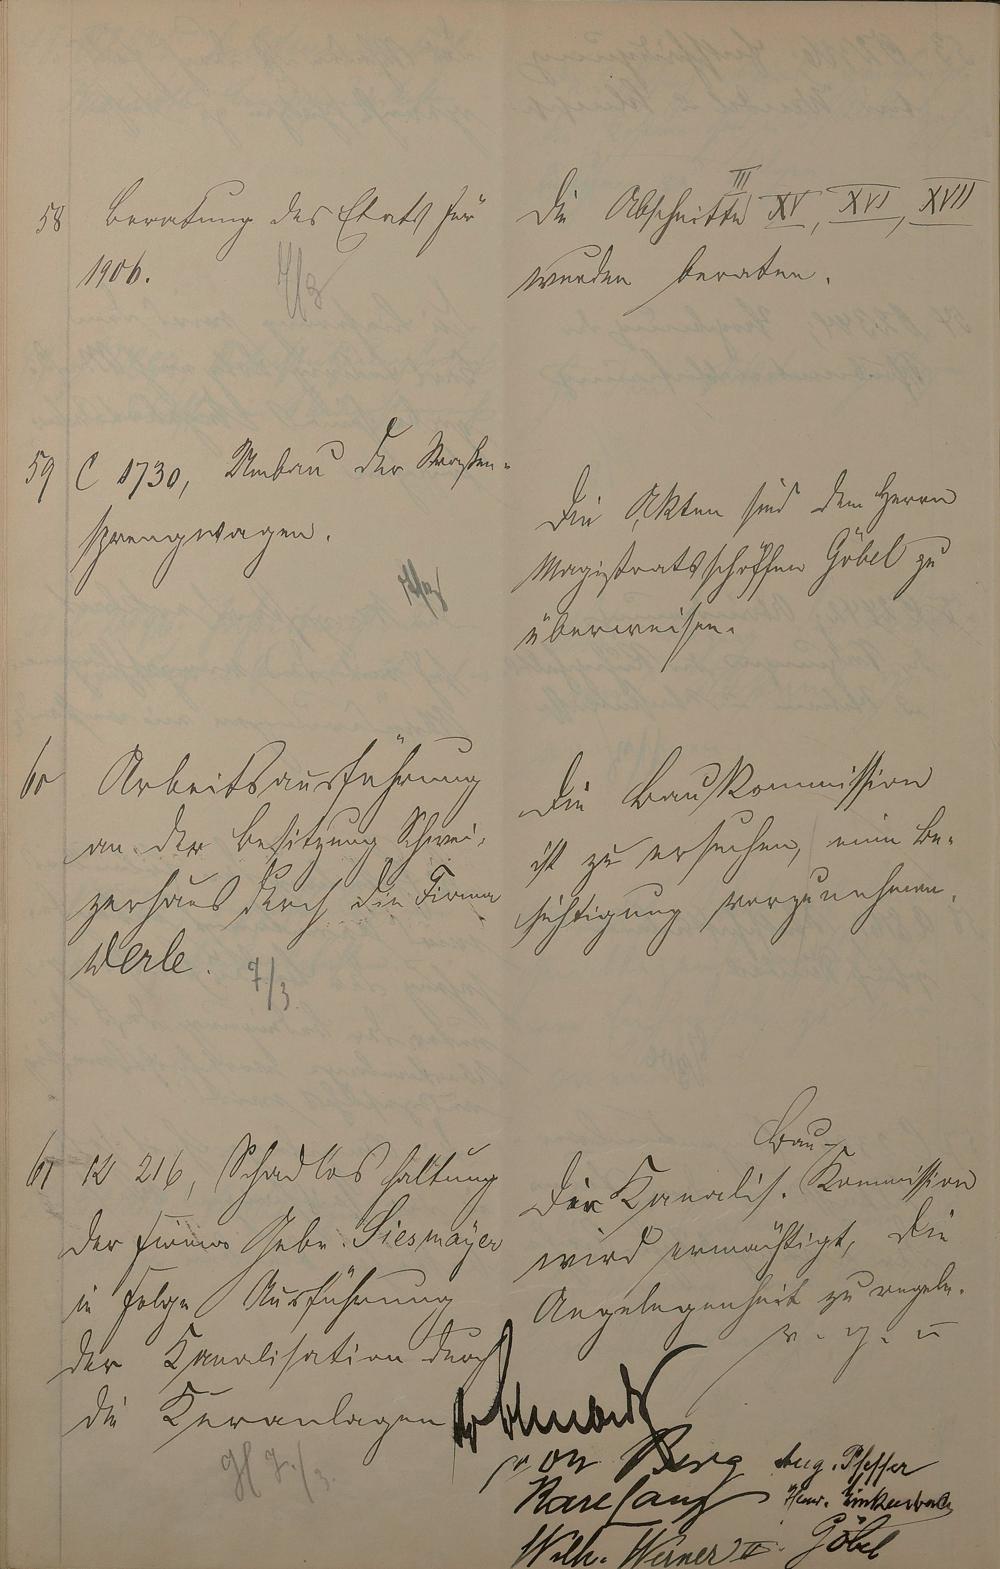 58 Beratung des Etats für
1906.
Die Abschnitte III XV, XVI, XVII
wurden beraten.
59 C 1730, Umbau der Straßen-
sprengwagen.
Die Akten sind dem Herrn
Magistratsschöffen Göbel zu
überweisen.
60 Arbeitsausführung
an der Besitzung Schwei-
zerhaus durch die Firma
Werle.
7/3
Die Baukommission
ist zu ersuchen, eine Be-
sichtigung vorzunehmen.
61 K 216, Schadloshaltung
der Firma Gebr. Siesmayer
in Folge Ausführung
der Kanalisation durch
die Kuranlagen
7./3.
Bau-
Die Kanalis. Kommission
wird ermächtigt, die
Angelegenheit zu regeln.
v. g. u
von Berg
Aug. Pfeffer
Göbel
Wilh. Werner II.